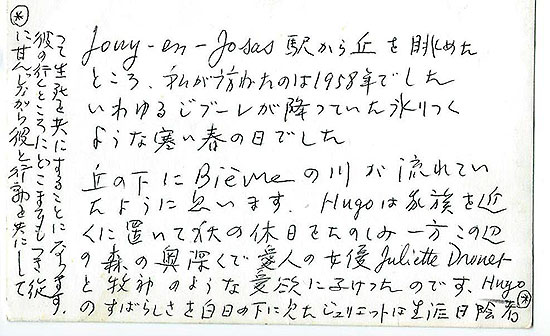 Jouy-en-Josas 駅から丘を眺めた
ところ、私が訪ねたのは1958年でした
いわゆるジブーレが降っていた氷りつく
ような寒い春の日でした
丘の下にBièvreの川が流れてい
たように思います. Hugoは家族を近
くに置いて秋の休日をたのしみ一方この辺
の森の奥深くで愛人の女優Juliette Drouet
と牧神のような愛欲にふけったのです. Hugo
のすばらしさを白日の下に見たジュリエットは生涯日陰者
※
※
に甘んじながら彼と行動を共にして
彼の行くところにどこまでもつき従
って生死を共にすることになります.